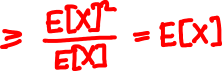 ≥ E[X]² / E[X] = E[X]